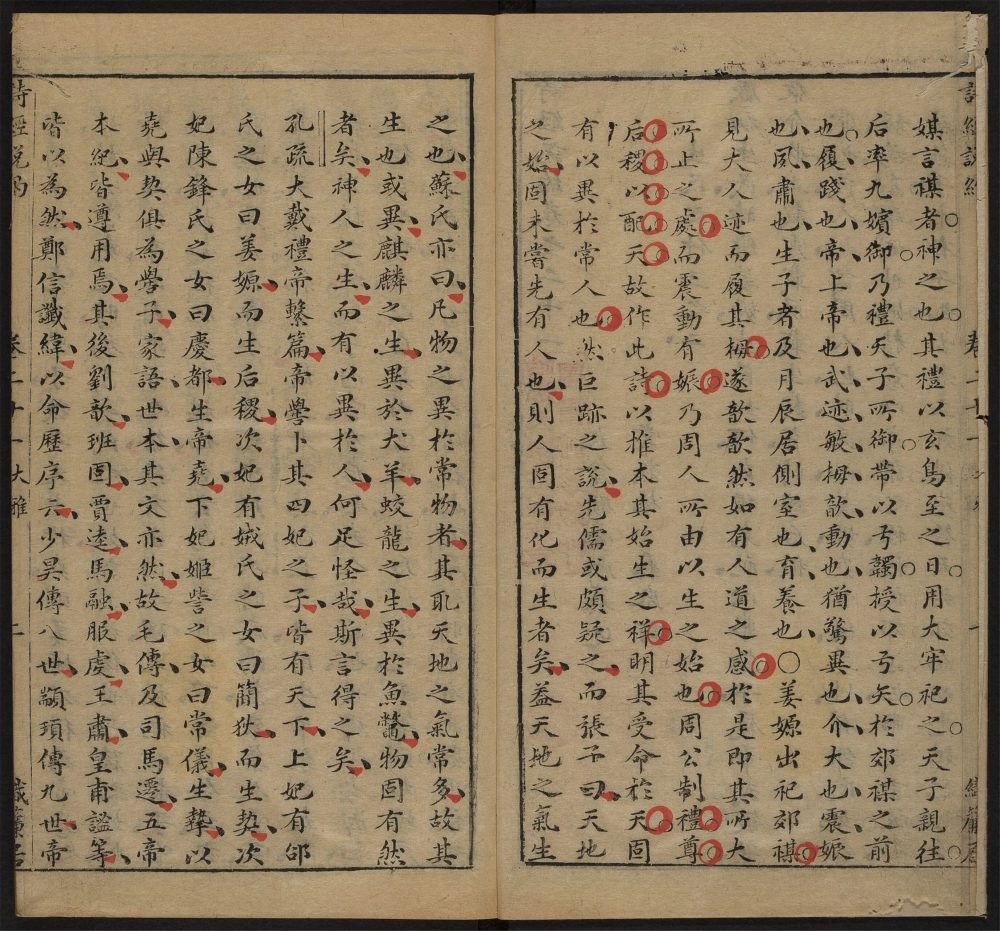 媒言禖者神之也其禮以玄鳥至之日用大牢祀之天子親往
后率九嬪御乃禮天子所御帶以弓韣授以弓矢於郊禖之前
也履踐也帝上帝也武迹敏栂歆動也猶驚異也介大也震娠
也夙肅也生子者及月辰居側室也育養也○姜嫄出祀郊禖
見大人迹而履其栂遂歆歆然如有人道之感於是即其所大
所止之處而震動有娠乃周人所由以生之始也周公制禮尊
后稷以配天故作此詩以推本其始生之祥明其受命於天固
有以異於常人也然巨跡之說先儒或頗疑之而張子曰天地
之始固未嘗先有人也則人固有化而生者矣葢天地之氣生
之也蘇氏亦曰凡物之異於常物者其取天地之氣常多故其
生也或異麒麟之生異於犬羊蛟龍之生異於魚鼈物固有然
者矣神人之生而有以異於人何足怪哉斯言得之矣
孔疏大戴禮帝繫篇帝嚳卜其四妃之子皆有天下上妃有邰
氏之女曰姜嫄而生后稷次妃有娀氏之女曰簡狄而生契次
妃陳鋒氏之女曰慶都生帝堯下妃娵訾之女曰常儀生摯以
堯與契俱為嚳子家語世本其文亦然故毛傳及司馬遷五帝
本紀皆遵用焉其後劉歆班固賈逵馬融服虔王肅皇甫謐等
皆以為然鄭信讖緯以命歷序云少昊傳八世顓頊傳九世帝
詩經說
卷二十一 大雅
二
織簾居